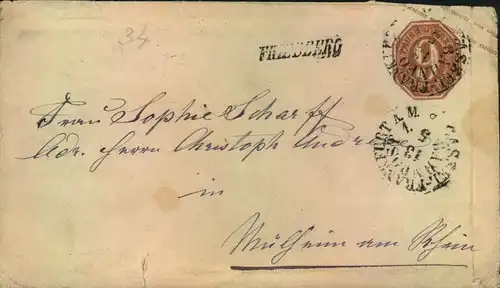 34
FRIEDBERG
Frau Sophie Scharff
Adr. Herrn Christoph Andr
in
Mülheim am Rhein
FRANKFURT A. M.
CASSEL